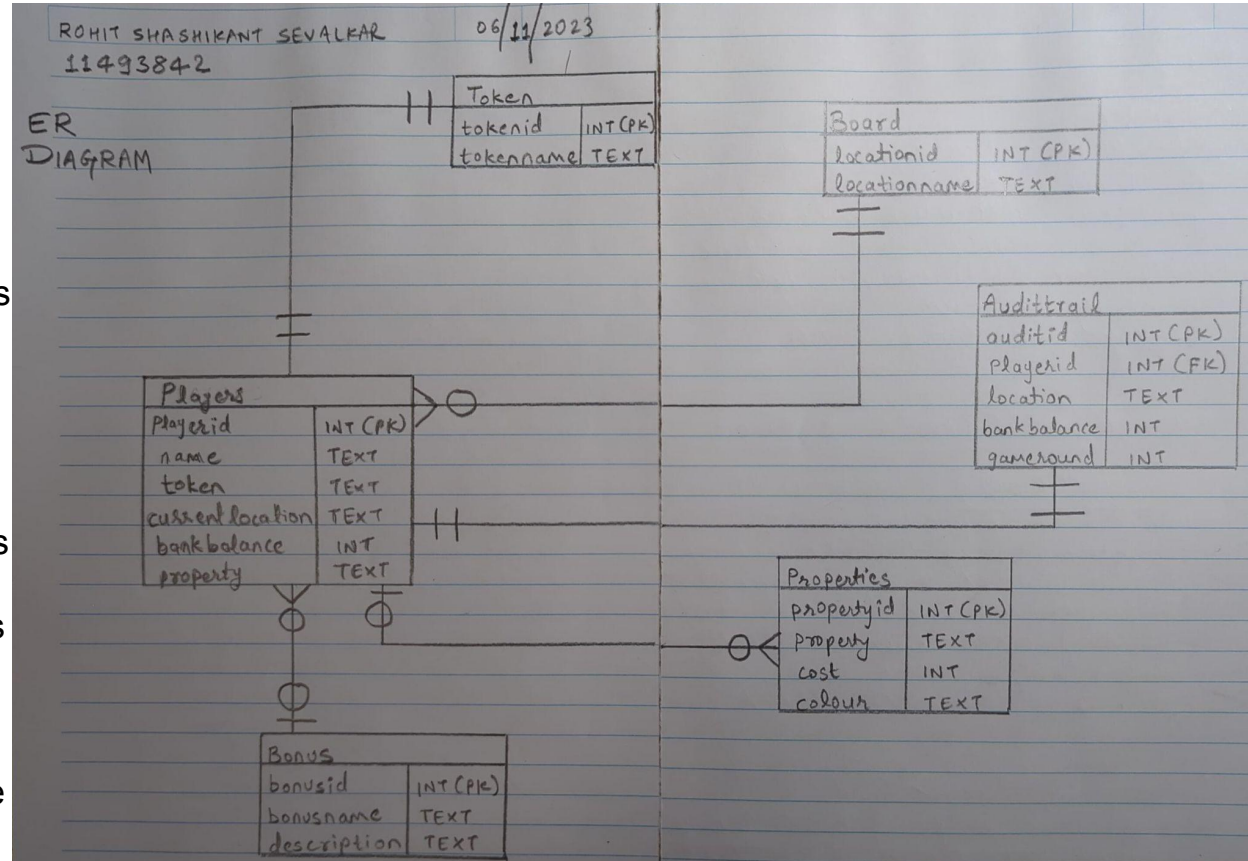 ROHIT SHASHIKANT SEVALKAR 06/11/2023
11493842
ER
DIAGRAM
Token
tokenid INT (PK)
tokenname TEXT
Board
locationid INT (PK)
locationname TEXT
Audittrail
auditid INT (PK)
Playerid INT (FK)
location TEXT
bankbalance INT
gameround INT
Players
Playerid INT (PK)
name TEXT
token TEXT
currentlocation TEXT
bankbalance INT
property TEXT
Properties
propertyid INT (PK)
property TEXT
cost INT
colour TEXT
Bonus
bonusid INT (PK)
bonusname TEXT
description TEXT
s
s
s
e